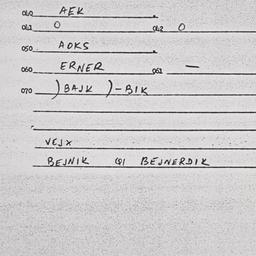 040 AEK
041 O 042 O
050 AOKS
060 ERNER 061 —
070 ) BAJK ) - BIK
VEJX
BEJNIK QI BEJNERDIK